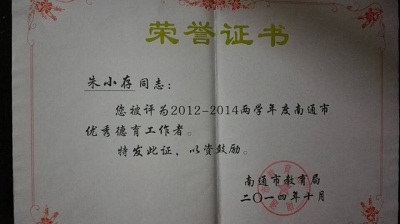 荣誉证书
朱小存同志：
您被评为2012-2014两学年度南通市
优秀德育工作者。
特发此证，以资鼓励。
南通市教育局
二〇一四年十月